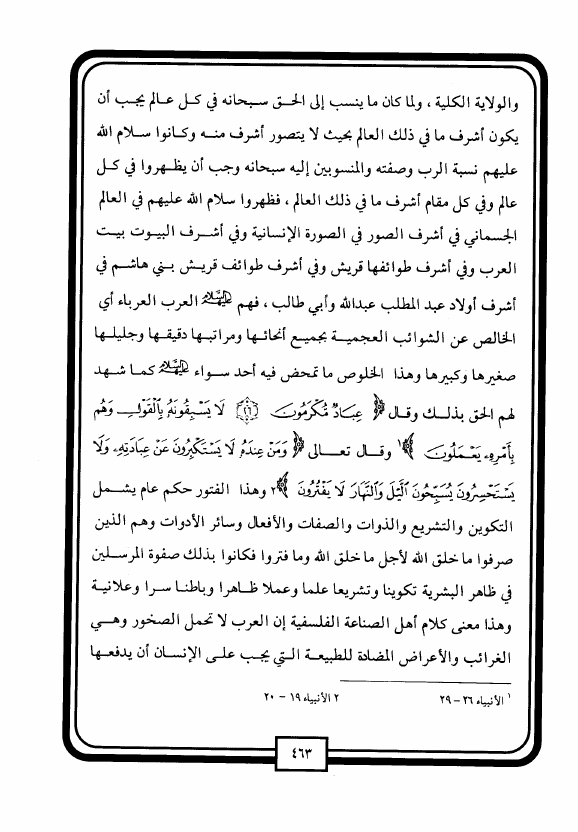 والولاية الكلية ، ولما كان ما ينسب إلى الحق سبحانه في كل عالم يجب أن
يكون أشرف ما في ذلك العالم بحيث لا يتصور أشرف منه وكانوا سلام الله
عليهم نسبة الرب وصفته والمنسوبين إليه سبحانه وجب أن يظهروا في كل
عالم وفي كل مقام أشرف ما في ذلك العالم ، فظهروا سلام الله عليهم في العالم
الجسماني في أشرف الصور في الصورة الإنسانية وفي أشرف البيوت بيت
العرب وفي أشرف طوائفها قريش وفي أشرف طوائف قريش بني هاشم في
أشرف أولاد عبد المطلب عبدالله وأبي طالب ، فهم عليهم السلام العرب العرباء أي
الخالص عن الشوائب العجمية بجميع أنحائها ومراتبها دقيقها وجليلها
صغيرها وكبيرها وهذا الخلوص ما تمحض فيه أحد سواء عليهم السلام كما شهد
لهم الحق بذلك وقال ﴿ عِبَادٌ مُّكْرَمُونَ ﴿٢٦﴾ لَا يَسْبِقُونَهُ بِالْقَوْلِ وَهُم
بِأَمْرِهِ يَعْمَلُونَ ﴾١ وقال تعالى ﴿ وَمَنْ عِندَهُ لَا يَسْتَكْبِرُونَ عَنْ عِبَادَتِهِ وَلَا
يَسْتَحْسِرُونَ يُسَبِّحُونَ الَّيْلَ وَالنَّهَارَ لَا يَفْتُرُونَ ﴾٢ وهذا الفتور حكم عام يشمل
التكوين والتشريع والذوات والصفات والأفعال وسائر الأدوات وهم الذين
صرفوا ما خلق الله لأجل ما خلق الله وما فتروا فكانوا بذلك صفوة المرسلين
في ظاهر البشرية تكوينا وتشريعا علما وعملا ظاهرا وباطنا سرا وعلانية
وهذا معنى كلام أهل الصناعة الفلسفية إن العرب لا تحمل الصخور وهي
الغرائب والأعراض المضادة للطبيعة التي يجب على الإنسان أن يدفعها
١ الأنبياء ٢٦ – ٢٩
٢ الأنبياء ١٩ – ٢٠
٤٦٣